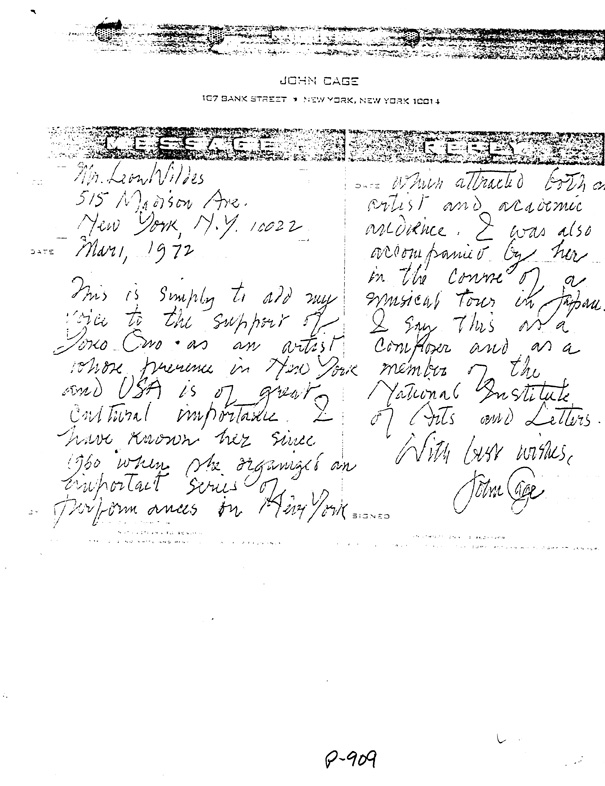 JOHN CAGE
107 BANK STREET • NEW YORK, NEW YORK 10014
MESSAGE
REPLY
Mr. Leon Wildes
515 Madison Ave.
New York, N.Y. 10022
DATE
Mar 1, 1972
This is simply to add my
voice to the support of
Yoko Ono as an artist
whose presence in New York
and USA is of great
cultural importance. I
have known her since
1960 when she organized an
important series of
performances in New York
DATE
which attracted both an
artist and academic
audience. I was also
accompanied by her
in the course of a
musical tour in Japan.
I say this as a
composer and as a
member of the
National Institute
of Arts and Letters.
With best wishes,
John Cage
SIGNED
P-909